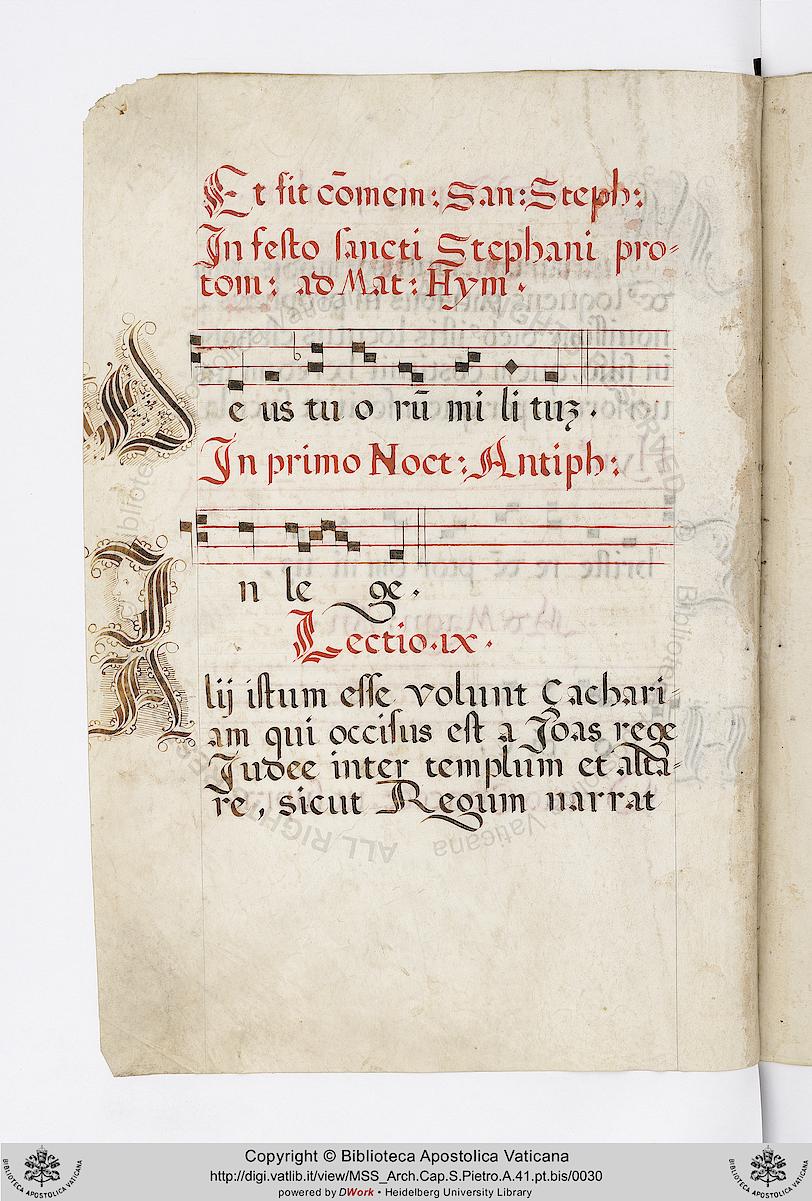 Et sit cōmem: San: Steph:
In festo sancti Stephani pro-
tom: ad Mat: Hym.
De us tu o rū mi li tuʒ.
In primo Noct: Antiph:
In le ge.
Lectio. ix.
Alij istum esse volunt Zachari-
am qui occisus est a Joas rege
Judee inter templum et alta-
re, sicut Regum narrat
Copyright © Biblioteca Apostolica Vaticana
http://digi.vatlib.it/view/MSS_Arch.Cap.S.Pietro.A.41.pt.bis/0030
powered by DWork • Heidelberg University Library
BIBLIOTECA APOSTOLICA VATICANA
BIBLIOTECA APOSTOLICA VATICANA